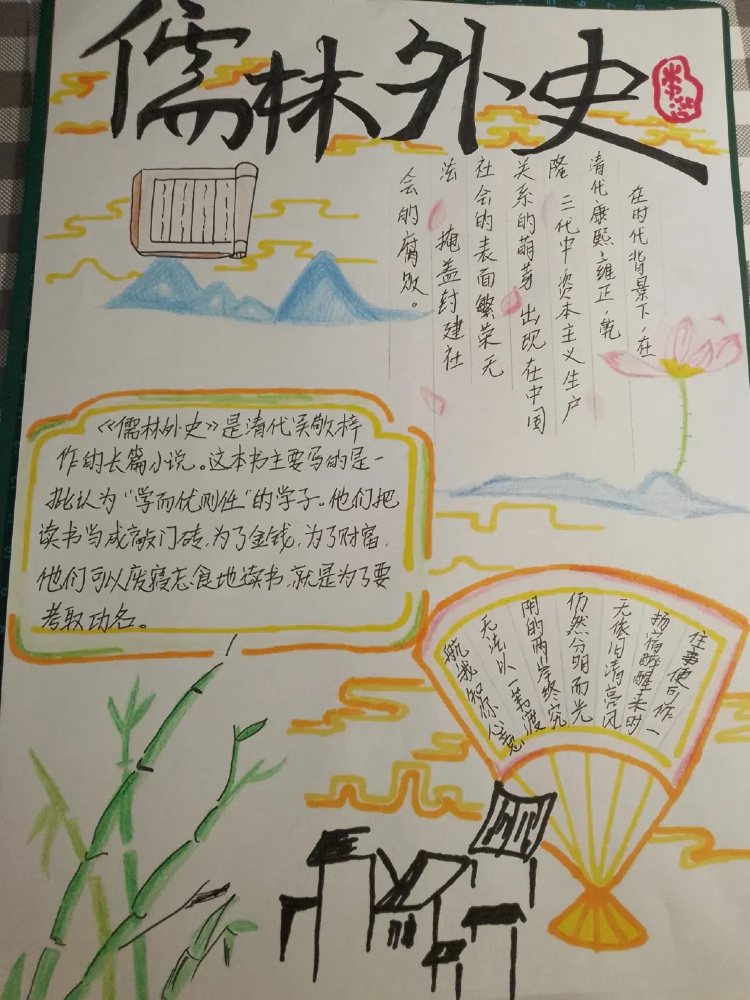 儒林外史
在时代背景下,在
清代康熙、雍正、乾
隆 三代中资本主义生产
关系的萌芽 出现在中国
社会的表面繁荣无
法 掩盖封建社
会的腐败。
《儒林外史》是清代吴敬梓
作的长篇小说。这本书主要写的是一
批认为“学而优则仕”的学子。他们把
读书当成敲门砖,为了金钱,为了财富,
他们可以废寝忘食地读书,就是为了要
考取功名。
往事便可作一
扬宿醉醒来时
无依旧清亮风
仍然分明而光
阴的两岸终究
无法以一苇渡
航我知你心意